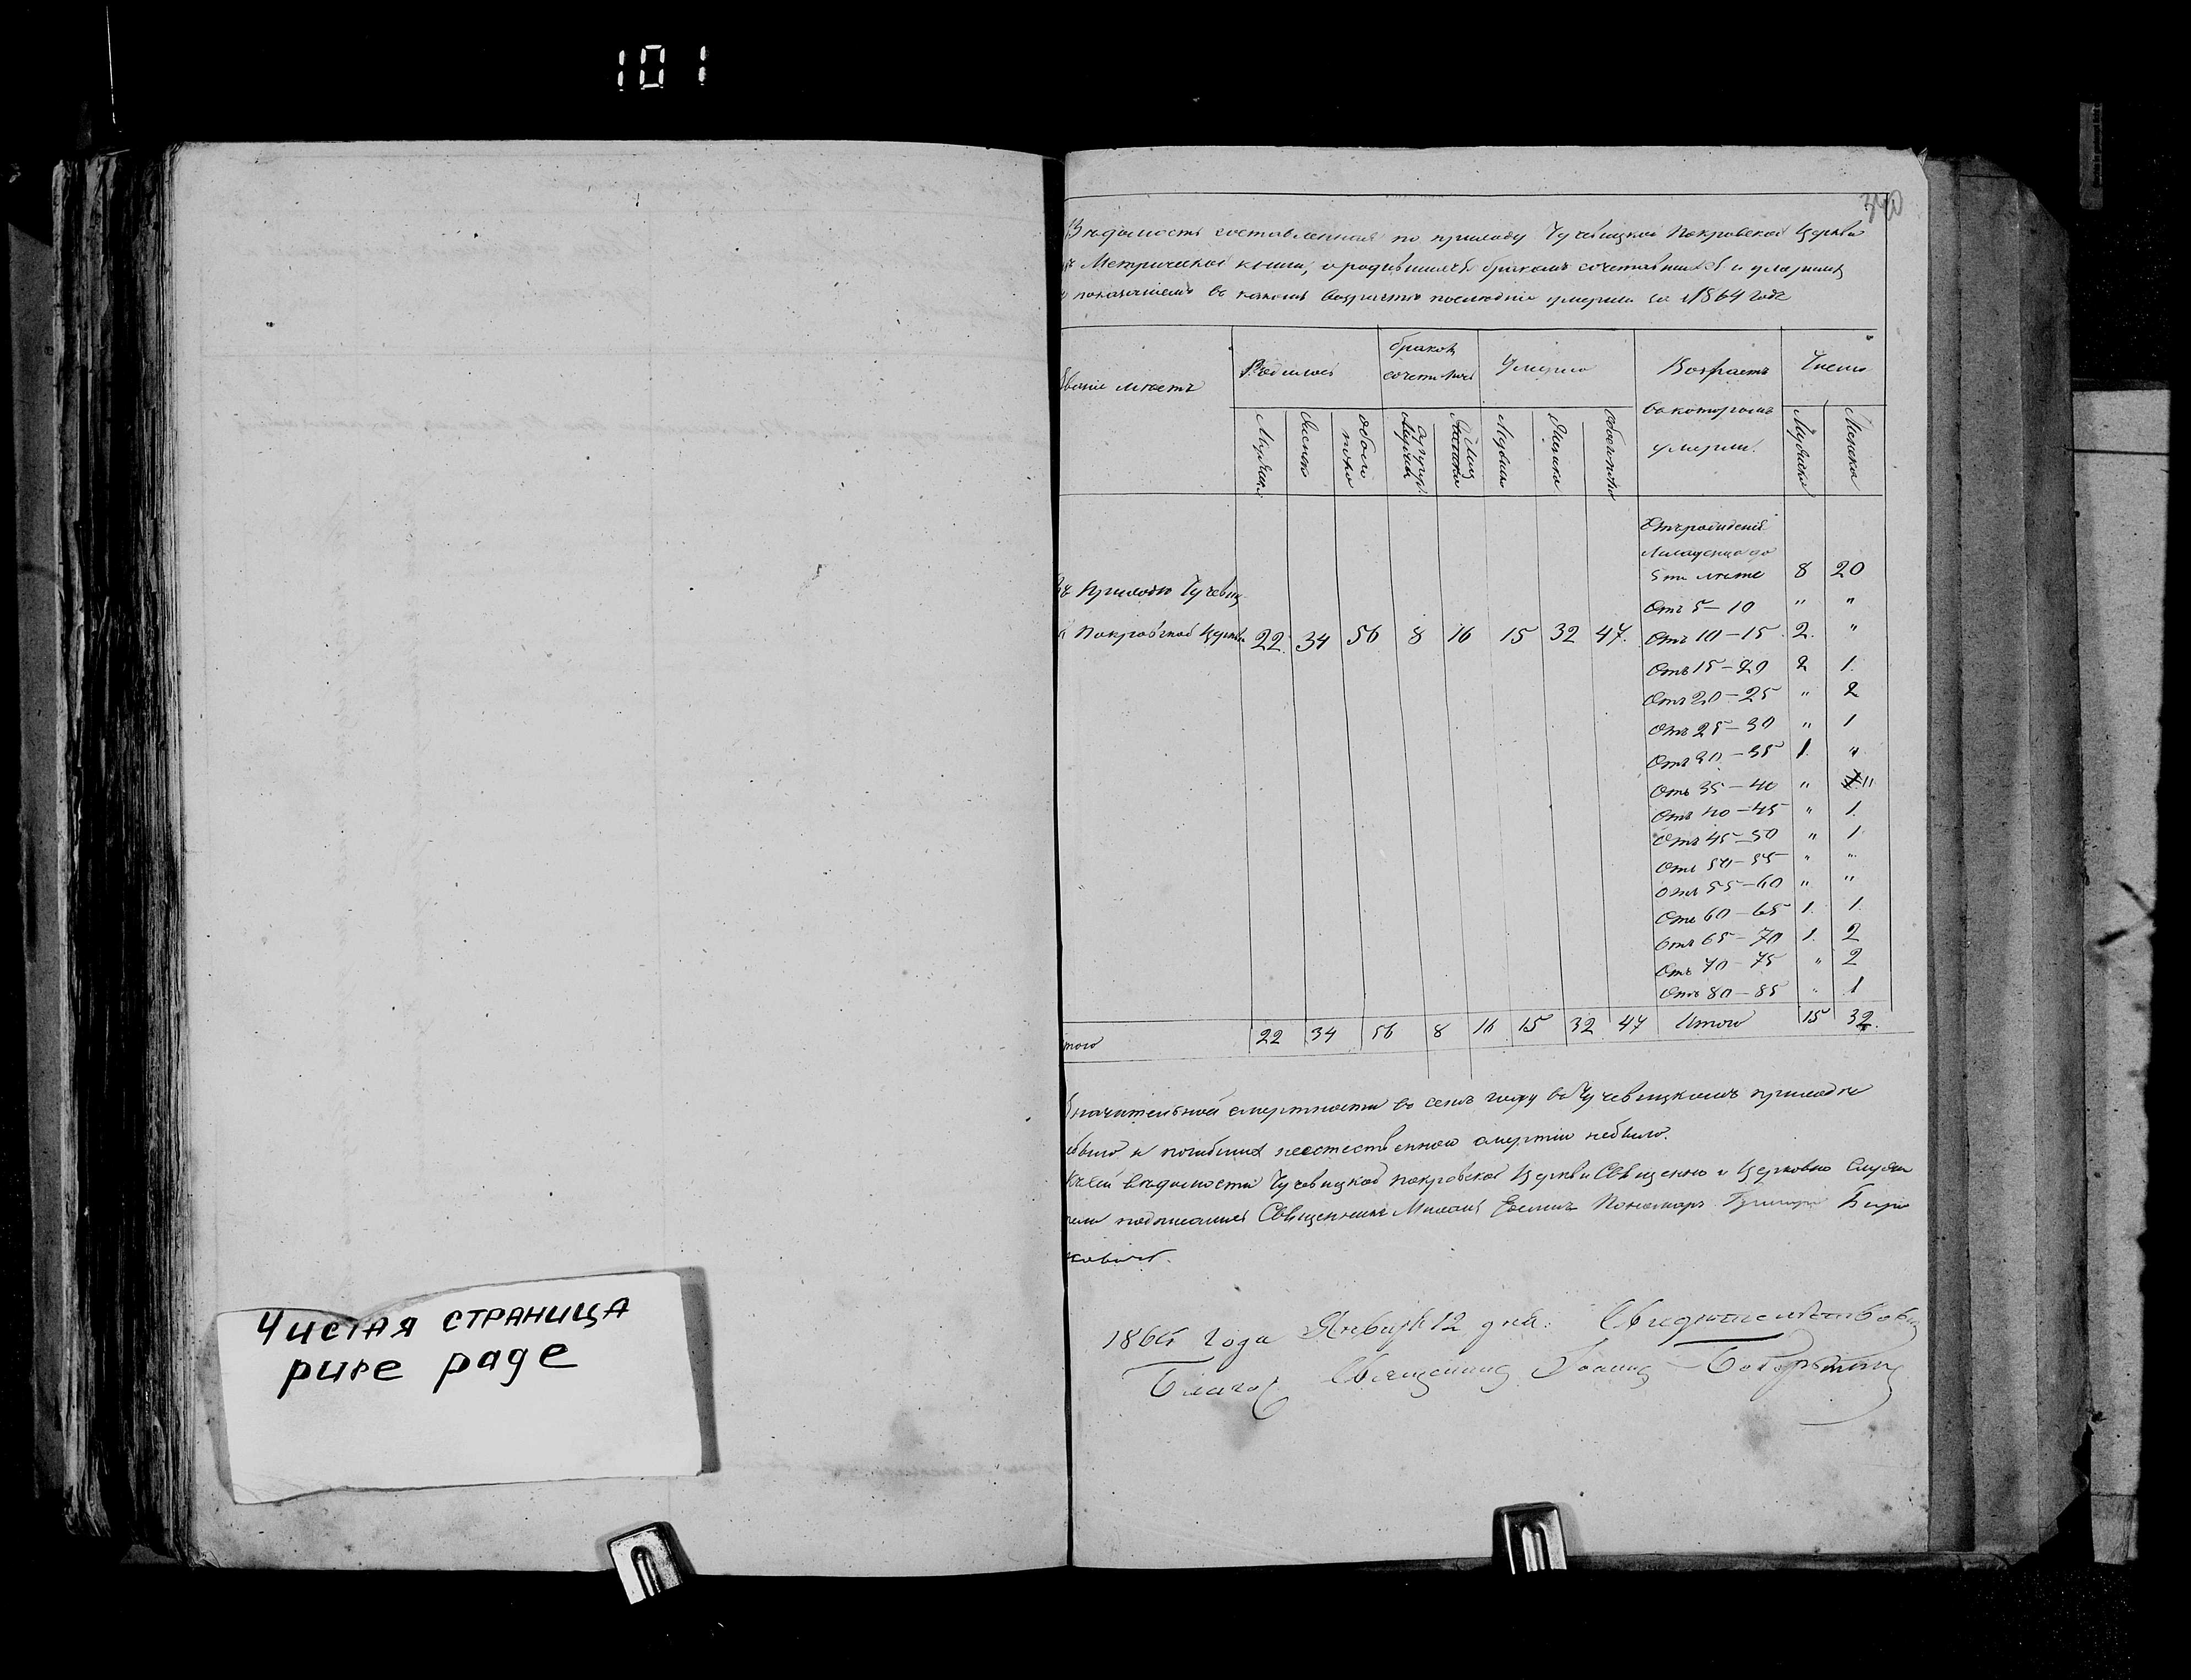 101
Чистая страница
pure page
340
Вѣдомость составленная по приходу Чучевицкой Покровской Церкви
Метрической книги, о родившихся бракомъ сочетавшихся и умершихъ
показаніемъ въ какомъ возрастѣ послѣдніе умерли за 1864 годъ
званіе мѣстъ
Родилось
браковъ сочеталось
Умерло
Возрастъ въ которомъ умерли.
Число
Мужска
Женска
обоего пола
супруж.
Мужска
Женска
обоего пола
Мужска
Женска
Отъ рожденія
Младенца до
5ти лѣтъ 8 20
Отъ 5–10 " "
По Приходу Чучевиц
Покровской Церкви 22. 34 56 8 16 15 32 47. Отъ 10–15 2. "
Отъ 15–20 2 1.
Отъ 20–25 " 2
Отъ 25–30 " 1
Отъ 30–35 1. "
Отъ 35–40 " "
Отъ 40–45 " 1.
Отъ 45–50 " 1.
Отъ 50–55 " "
Отъ 55–60 " "
Отъ 60–65 1. 1.
Отъ 65–70 1. 2
Отъ 70–75 " 2
Отъ 80–85 " 1
того 22 34 56 8 16 15 32 47 Итого 15 32.
Значительной смертности въ семъ году въ Чучевицкомъ приходѣ
было и погибшихъ неестественною смертію небыло.
Къ сей вѣдомости Чучевицкой покровской Церкви Священно и Церковно Служи
тели подписались Священникъ Пономарь Григорій Бирю
ковичъ.
1865 года Января 12 дня. Свидѣтельствовалъ
Благоч. Священникъ Іоаннъ